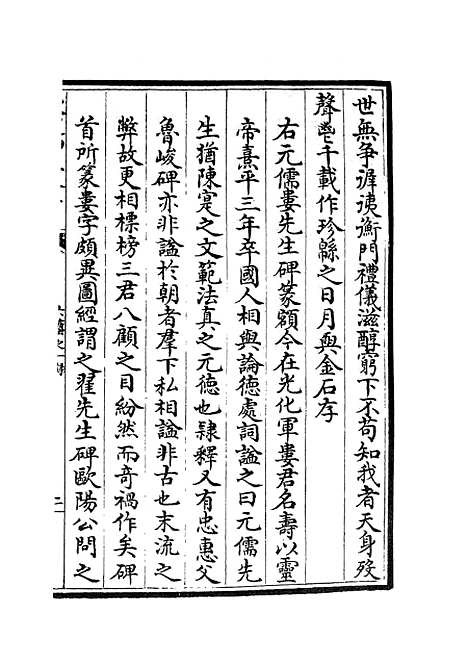 世無争遲洟衡門禮儀滋醇窮下不苟知我者天身歿
聲鬯千載作珍緜之日月與金石存
右元儒婁先生碑篆額今在光化軍婁君名壽以靈
帝熹平三年卒國人相與論德處詞謚之曰元儒先
生猶陳寔之文範法真之元德也隸釋又有忠惠父
魯峻碑亦非謚於朝者羣下私相謚非古也末流之
弊故更相標榜三君八顧之目紛然而奇禍作矣碑
首所篆婁字頗異圖經謂之翟先生碑歐陽公問之